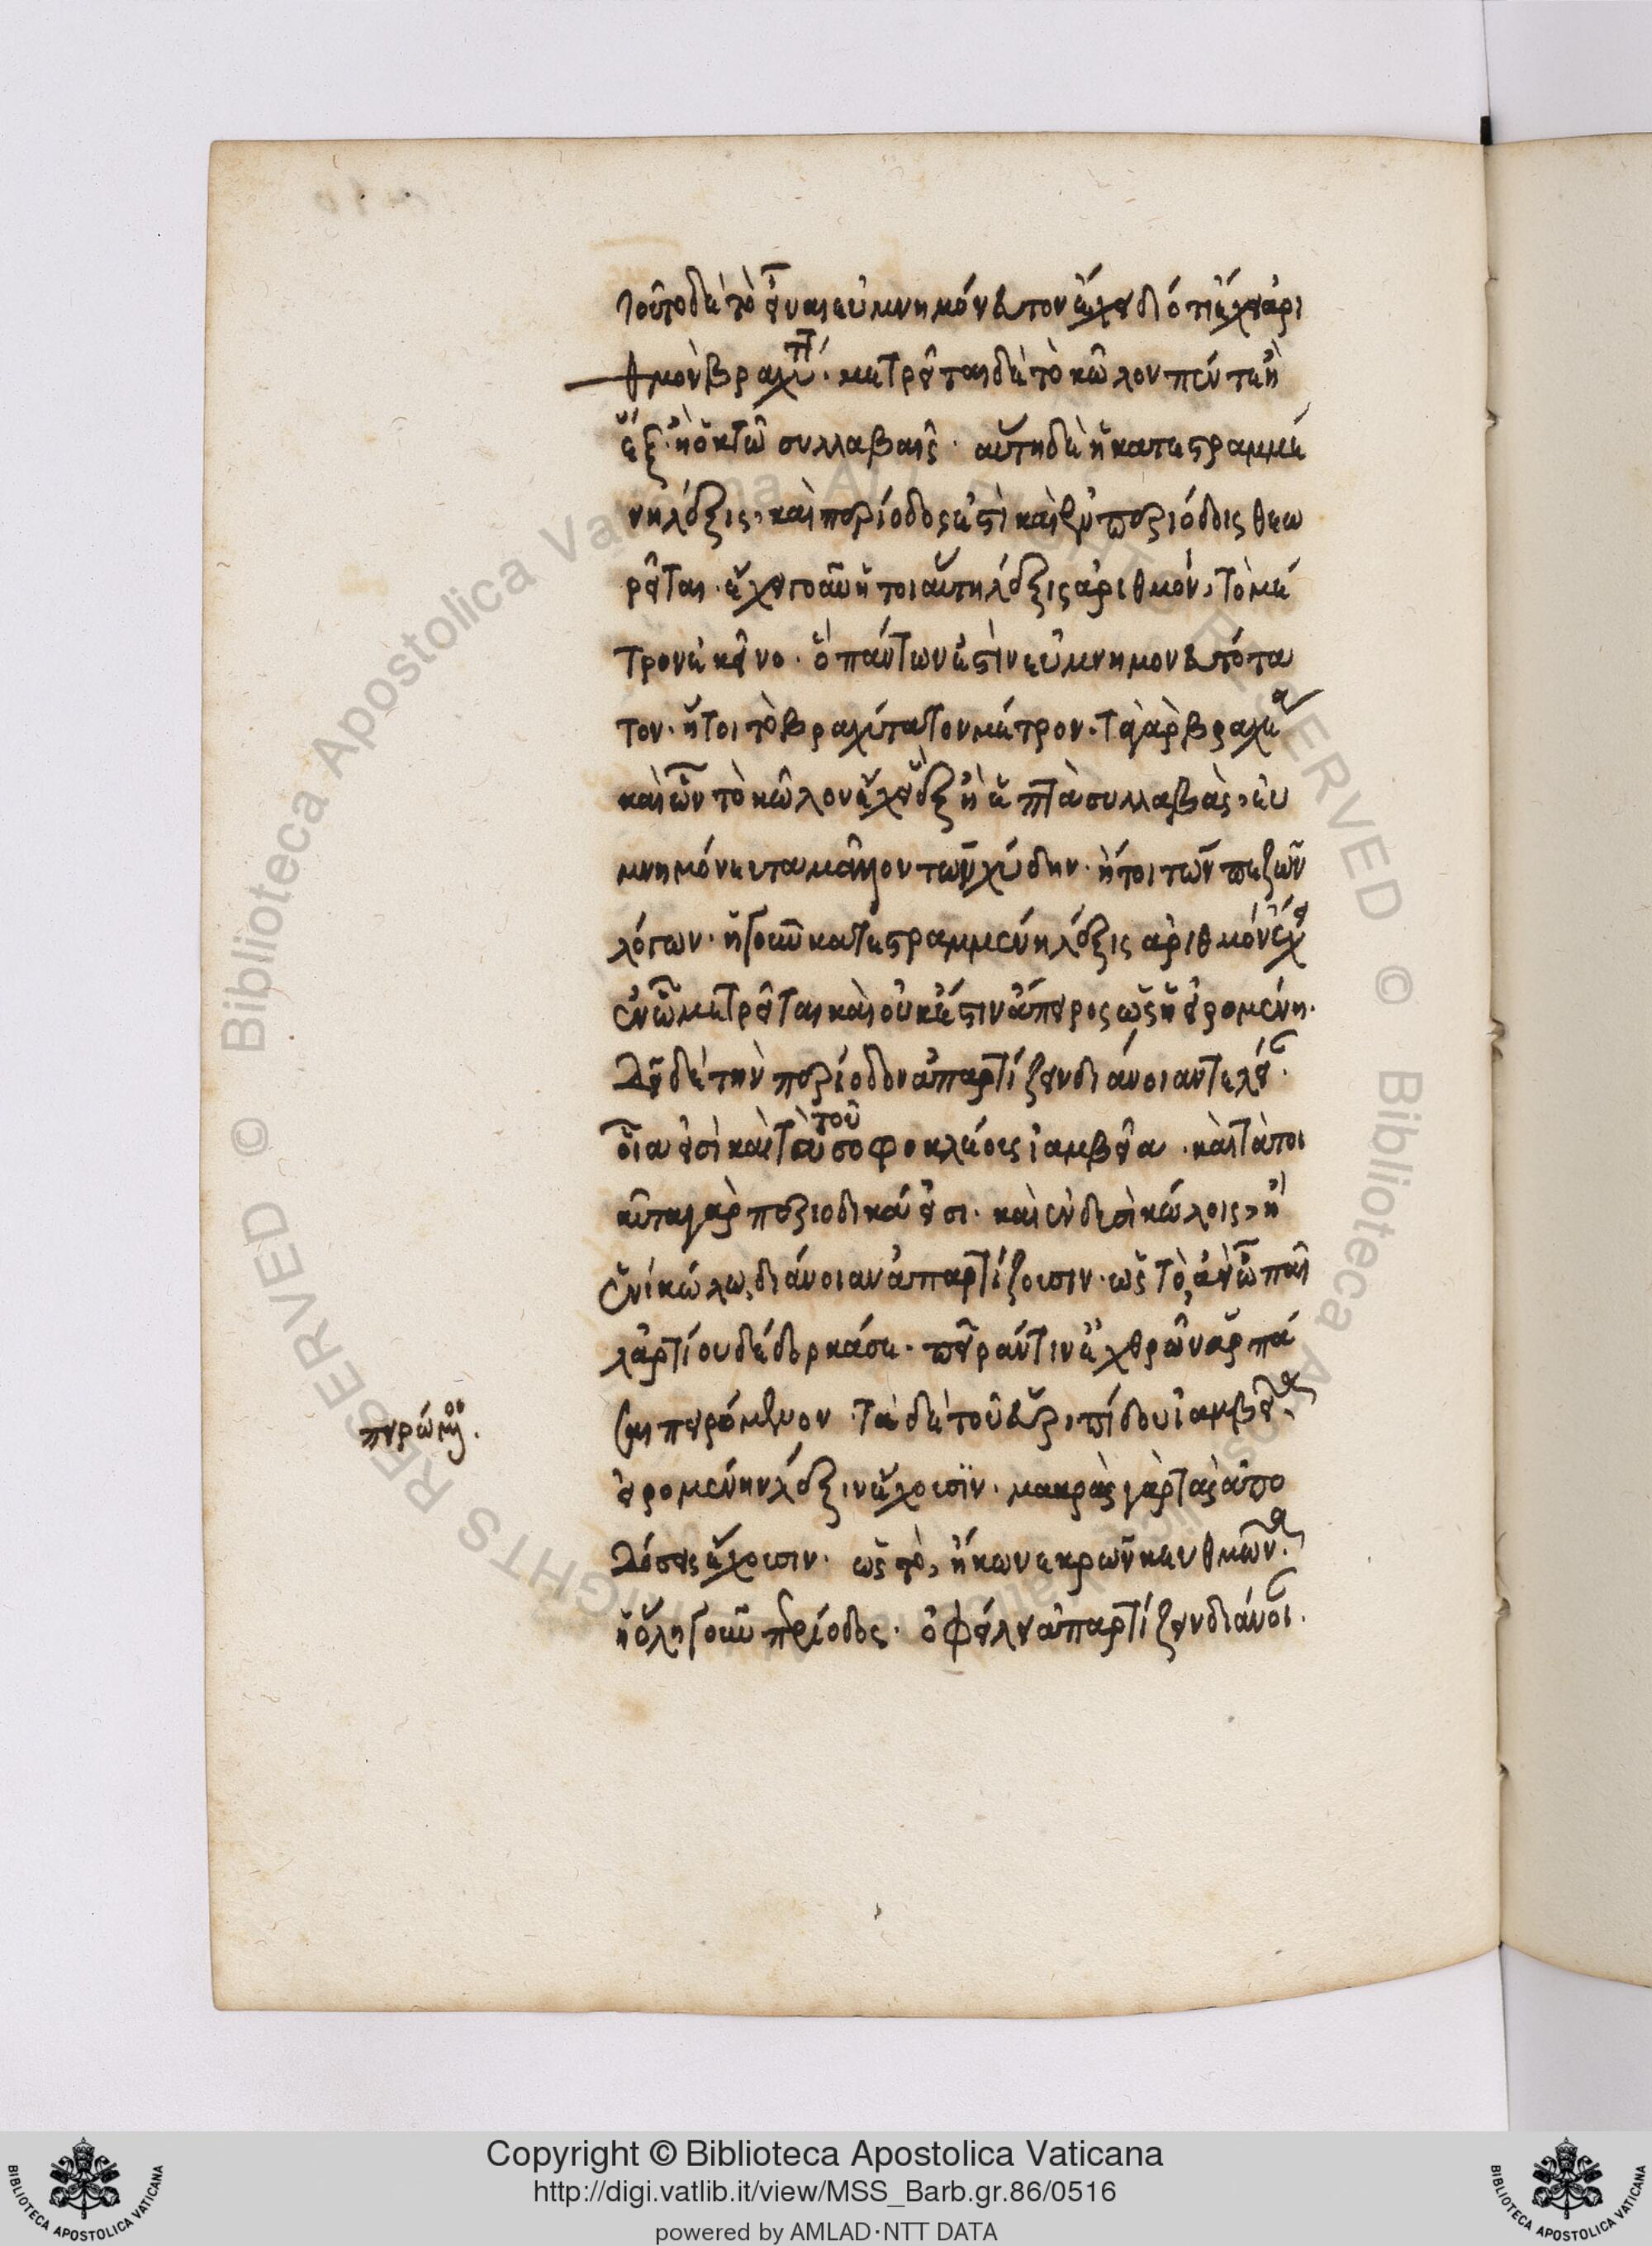 τοῦτο δὲ τὸ εἶναι εὐμνημόνευτον ἔχει διότι ἔχει ἀρι
θμὸν βραχύ. μετρεῖται δὲ τὸ κῶλον πέντε ἢ
ἓξ. ἢ ὀκτὼ συλλαβαῖς. αὕτη δὲ ἡ κατεστραμμέ
νη λέξις, καὶ περίοδός ἐστι καὶ ἐν περιόδοις θεω
ρεῖται. ἔχει γοῦν ἡ τοιαύτη λέξις ἀριθμὸν, τὸ μέ
τρον ἐκεῖνο. ὃ πάντων ἐστὶν εὐμνημονευτότα
τον. ἤτοι τὸ βραχύτατον μέτρον. τὰ γὰρ βραχέα
καὶ ὧν τὸ κῶλον ἔχει ἓξ ἢ ἑπτὰ συλλαβὰς, εὐ
μνημόνευτα μᾶλλον τῶν χύδην. ἤτοι τῶν πεζῶν
λόγων. ἡ γοῦν κατεστραμμένη λέξις ἀριθμὸν ἔχει
ἐν ᾧ μετρεῖται καὶ οὐκ ἔστιν ἄπειρος ὡς ἡ εἰρομένη.
δεῖ δὲ τὴν περίοδον ἀπαρτίζειν διάνοιαν τελεί.
οἷα εἰσὶ καὶ τὰ τοῦ σοφοκλέους ἰαμβεῖα. καὶ τὰ ποι
κεῖται γὰρ περιοδικά εἰσι. καὶ ἐν δυσὶ κώλοις, ἢ
ἑνὶ κώλω, διάνοιαν ἀπαρτίζουσιν. ὡς τὸ, ἀεὶ ὦ παῖ
λαρτίου δέδορκά σε. πεῖράν τιν ἐχθρῶν ἁρπά
σαι πειρώμενον. τὰ δὲ τοῦ εὐριπίδου ἰαμβεῖα
εἰρομένην λέξιν ἔχουσιν. μακρὰς γὰρ τὰς ἀπο
δόσεις ἔχουσιν. ὡς τὸ, ἥκω νεκρῶν κευθμῶνα.
ἡ ὅλη γοῦν περίοδος. ὀφείλει ἀπαρτίζειν διάνοι.
Copyright © Biblioteca Apostolica Vaticana
http://digi.vatlib.it/view/MSS_Barb.gr.86/0516
powered by AMLAD·NTT DATA